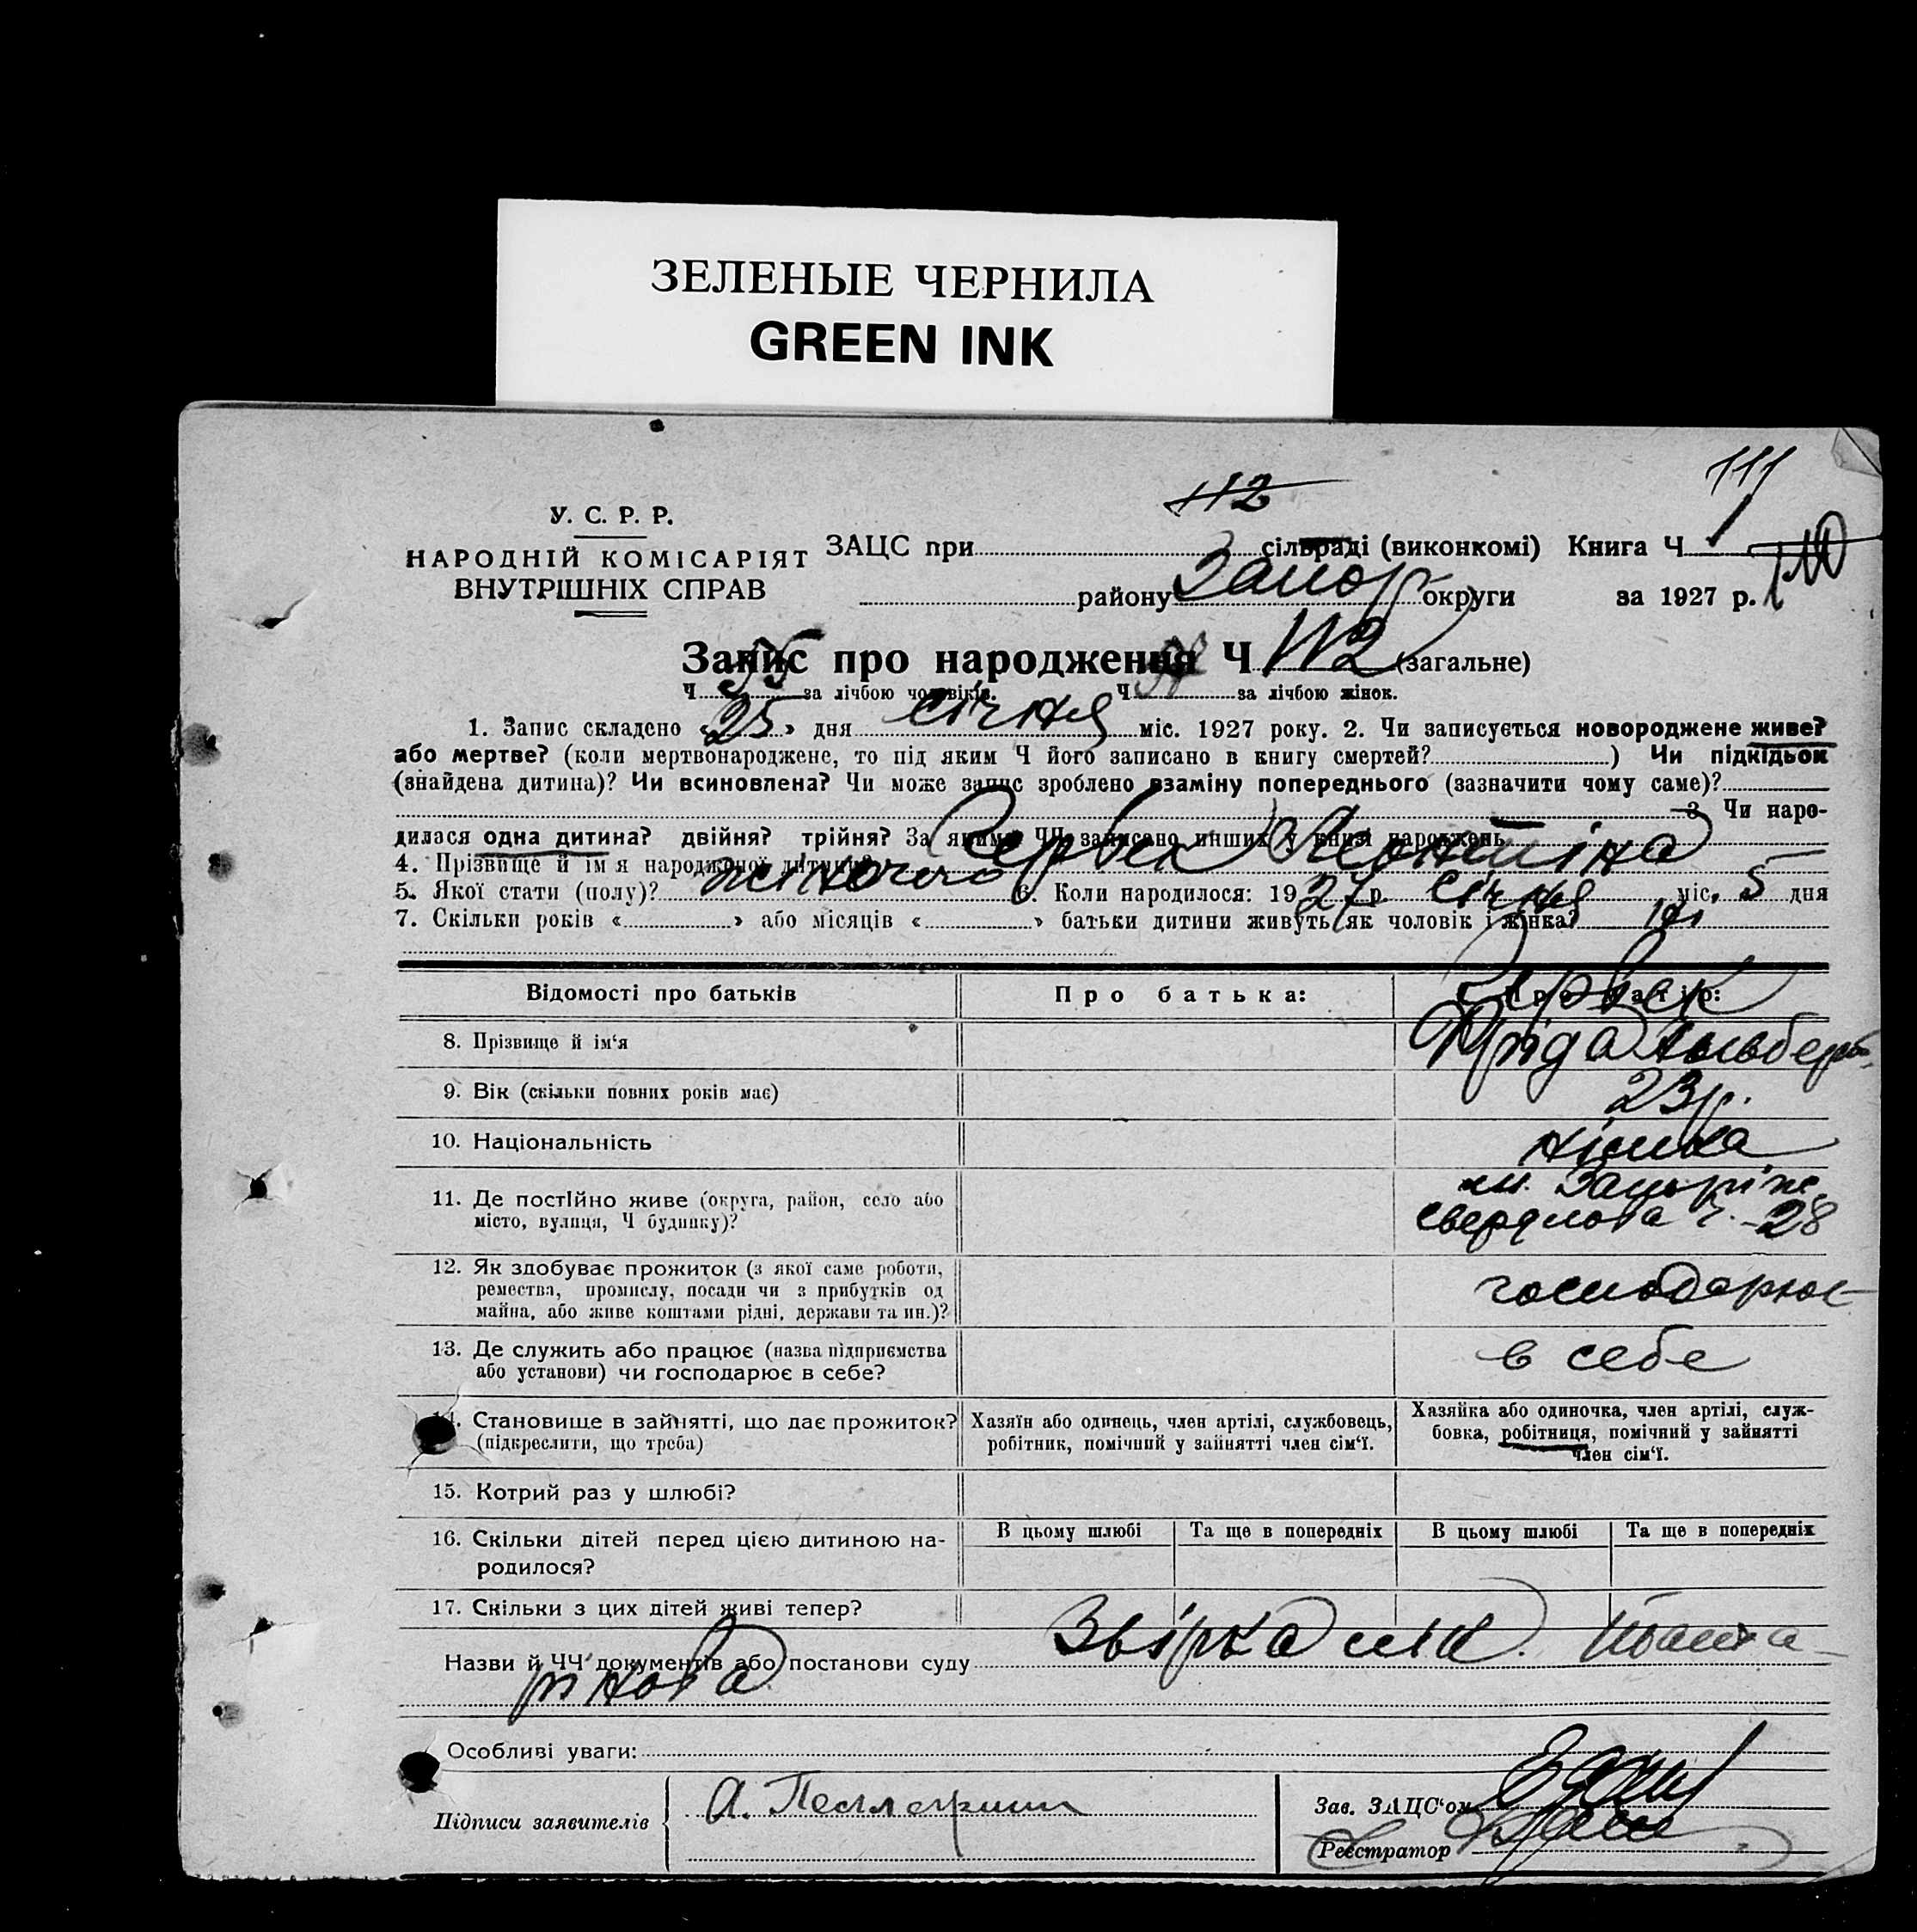 ЗЕЛЕНЫЕ ЧЕРНИЛА
GREEN INK
111
112
У. С. Р. Р.
НАРОДНІЙ КОМІСАРІЯТ
ВНУТРІШНІХ СПРАВ
ЗАЦС при сільраді (виконкомі) Книга Ч 1
району Запор округи за 1927 р.
Запис про народження Ч 112 (загальне)
Ч за лічбою чоловіків. Ч за лічбою жінок.
1. Запис складено «25» дня січня міс. 1927 року. 2. Чи записується новороджене живе?
або мертве? (коли мертвонароджене, то під яким Ч його записано в книгу смертей? ) Чи підкідьок
(знайдена дитина)? Чи всиновлена? Чи може запис зроблено взаміну попереднього (зазначити чому саме)?
3 Чи наро-
дилася одна дитина? двійня? трійня? За якими ЧЧ записано инших у книзі народжень
4. Прізвище й ім'я народженої дитини?
5. Якої стати (полу)? жіночого 6. Коли народилося: 1927 р. січня міс. 5 дня
7. Скільки років « » або місяців « » батьки дитини живуть як чоловік і жінка? ні
Відомості про батьків Про батька: Про матір:
8. Прізвище й ім'я Фріда Альберт
9. Вік (скільки повних років має) 23 р.
10. Національність німка
11. Де постійно живе (округа, район, село або м. Запоріже
місто, вулиця, Ч будинку)? Свердлова ч. 28
12. Як здобуває прожиток (з якої саме роботи,
ремества, промислу, посади чи з прибутків од господарює
майна, або живе коштами рідні, держави та ин.)?
13. Де служить або працює (назва підприємства в себе
або установи) чи господарює в себе?
14. Становище в зайнятті, що дає прожиток? Хазяїн або одинець, член артілі, службовець, Хазяйка або одиночка, член артілі, служ-
(підкреслити, що треба) робітник, помічний у зайнятті член сім'ї. бовка, робітниця, помічний у зайнятті
член сім'ї.
15. Котрий раз у шлюбі?
16. Скільки дітей перед цією дитиною на- В цьому шлюбі Та ще в попередніх В цьому шлюбі Та ще в попередніх
родилося?
17. Скільки з цих дітей живі тепер?
Назви й ЧЧ документів або постанови суду
Особливі уваги:
Підписи заявителів А.
Зав. ЗАЦС'ом
Реєстратор